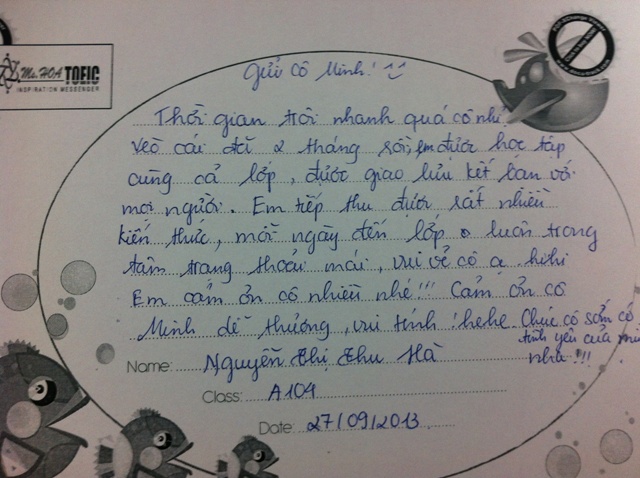 Ms. HOA TOEIC
INSPIRATION MESSENGER
Gửi cô Minh!
Thời gian trôi nhanh quá cô nhỉ!
Vèo cái đã 2 tháng rồi, em được học tập
cùng cả lớp, được giao lưu kết bạn với
mọi người. Em tiếp thu được rất nhiều
kiến thức, mỗi ngày đến lớp luôn trong
tâm trạng thoải mái, vui vẻ cô ạ. hihi
Em cảm ơn cô nhiều nhé!!! Cảm ơn cô
Minh dễ thương, vui tính! hehe. Chúc cô sớm có
tình yêu của mình
nha!!!
Name: Nguyễn Thị Thu Hà
Class: A104
Date: 27/09/2013